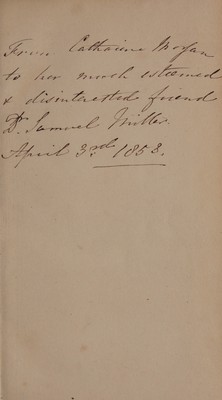 From Catharine Morgan
to her much esteemed
& disinterested friend
Dr. Samuel Miller.
April 3rd. 1853.